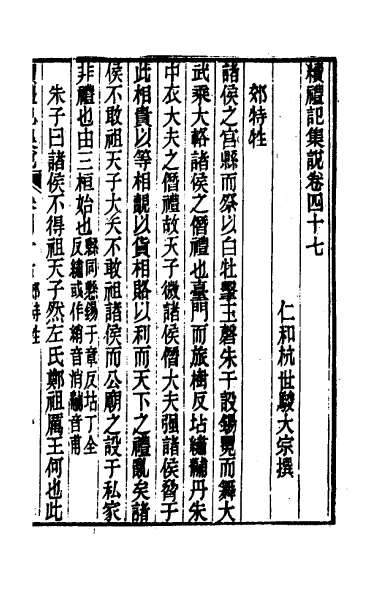 續禮記集說卷四十七
仁和杭世駿大宗撰
郊特牲
諸侯之宮縣而祭以白牡擊玉磬朱干設錫冕而舞大
武乘大輅諸侯之僭禮也臺門而旅樹反坫繡黼丹朱
中衣大夫之僭禮故天子微諸侯僭大夫强諸侯脅于
此相貴以等相覿以貨相賂以利而天下之禮亂矣諸
侯不敢祖天子大夫不敢祖諸侯而公廟之設于私家
非禮也由三桓始也縣同懸錫于章反坫丁念
反繡或作綃音消黼音甫
朱子曰諸侯不得祖天子然左氏鄭祖厲王何也此
郊特牲